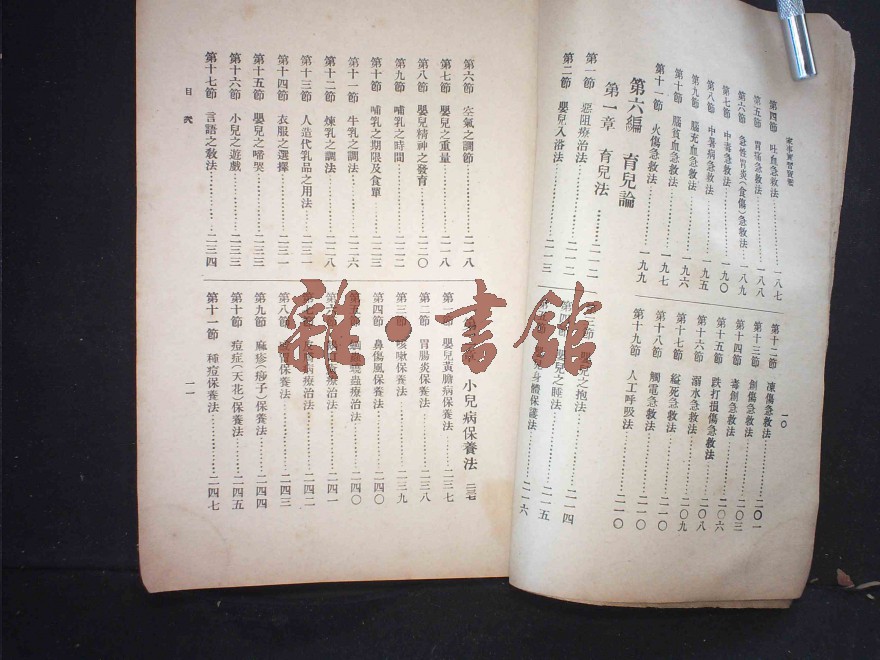 家事實習寶鑑
第四節 吐血急救法 一八七
第五節 胃痛急救法 一八八
第六節 急性胃炎(食傷)急救法 一八九
第七節 中毒急救法 一九〇
第八節 中暑病急救法 一九五
第九節 腦充血急救法 一九六
第十節 腦貧血急救法 一九八
第十一節 火傷急救法 一九九
第六編 育兒論
第一章 育兒法 二一二
第一節 惡阻療治法 二一二
第二節 嬰兒入浴法 二一三
一〇
第十二節 凍傷急救法 二〇一
第十三節 創傷急救法 二〇三
第十四節 毒創急救法
第十五節 跌打損傷急救法 二〇六
第十六節 溺水急救法 二〇八
第十七節 縊死急救法 二〇九
第十八節 觸電急救法 二一〇
第十九節 人工呼吸法 二一〇
兒之抱法 二一四
嬰兒之睡法 二一五
兒身體保護法 二一六
第六節 空氣之調節 二一八
第七節 嬰兒之重量 二一八
第八節 嬰兒精神之發育 二二〇
第九節 哺乳之時間 二二二
第十節 哺乳之期限及食單 二二二
第十一節 牛乳之調法 二二六
第十二節 煉乳之調法 二二八
第十三節 人造代乳品之用法 二三一
第十四節 衣服之選擇 二三一
第十五節 嬰兒之啼哭 二三三
第十六節 小兒之遊戲 二三三
第十七節 言語之教法 二三四
目次
小兒病保養法 二三七
第一節 嬰兒黃膽病保養法 二三七
第二節 胃腸炎保養法 二三八
第三節 咳嗽保養法 二三九
第四節 鼻傷風保養法 二四〇
蟲療治法 二四〇
療治法 二四一
病療治法 二四二
第八節 保養法 二四三
第九節 麻疹(痧子)保養法 二四四
第十節 痘症(天花)保養法 二四五
第十一節 種痘保養法 二四七
一一
雜·書館